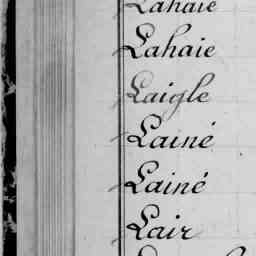 Lahaie
Lahaie
Laigle
Lainé
Lainé
Lair